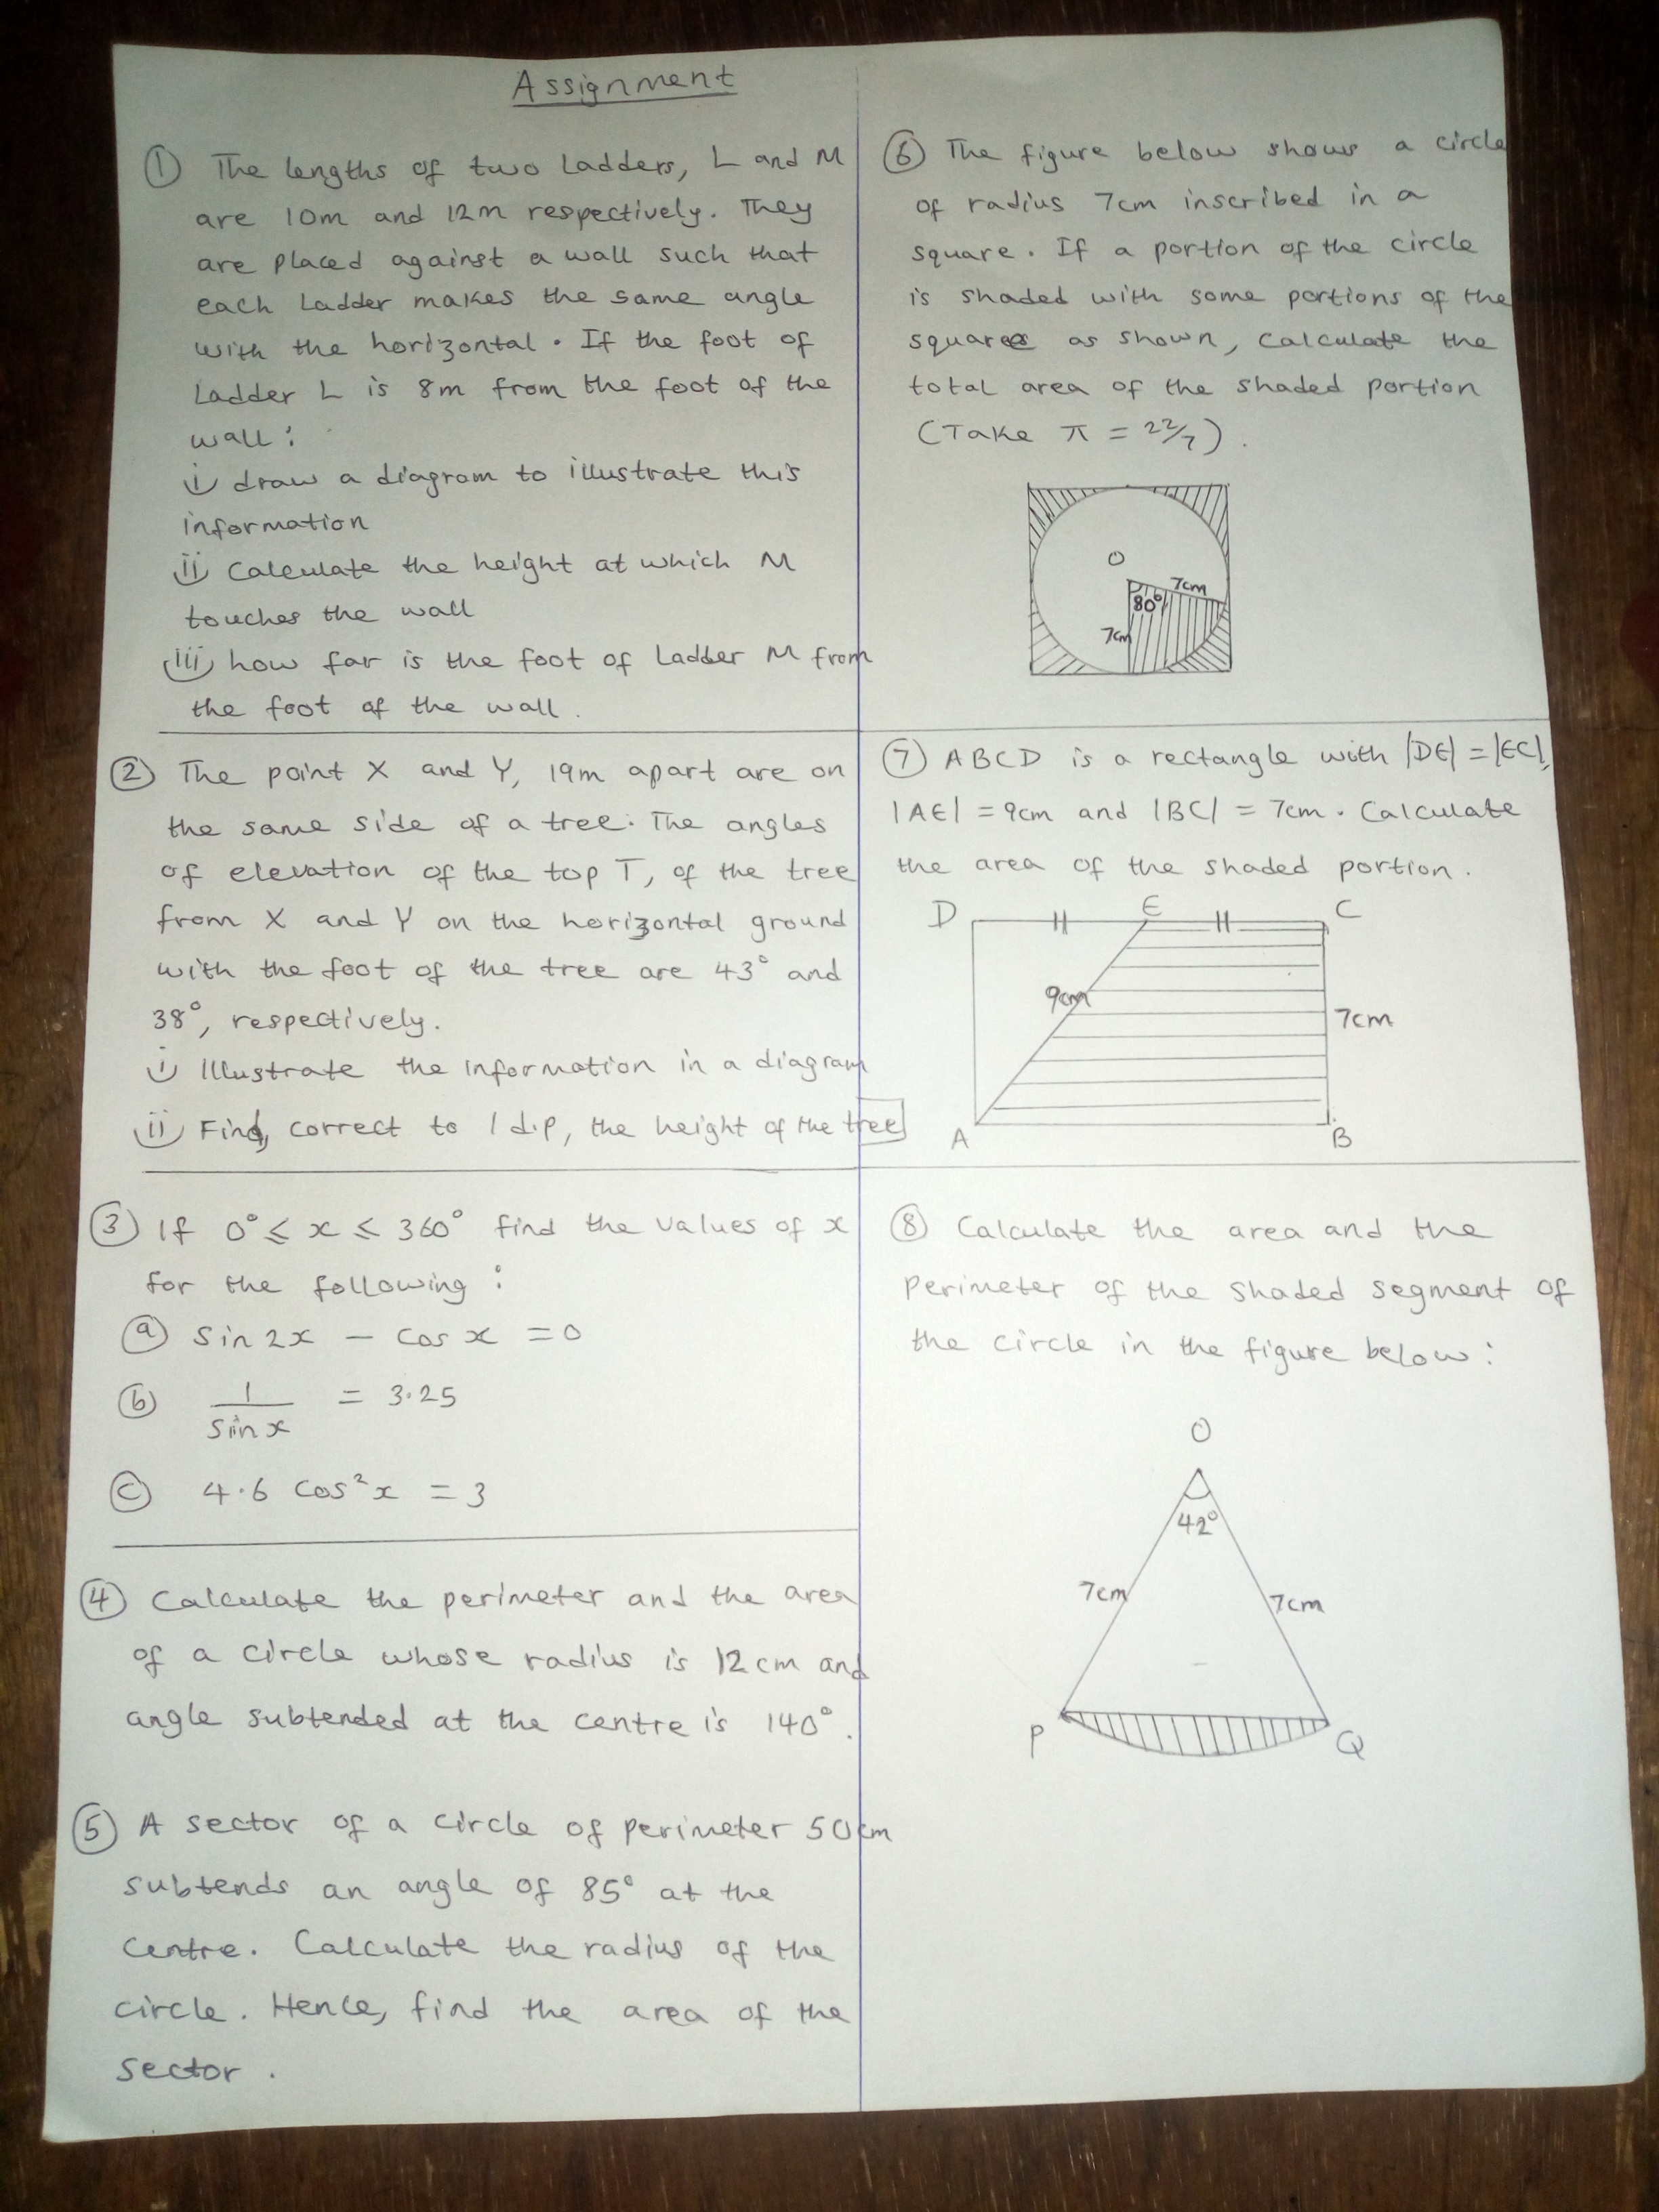 Assignment
① The lengths of two ladders, L and M
are 10m and 12m respectively. They
are placed against a wall such that
each ladder makes the same angle
with the horizontal. If the foot of
ladder L is 8m from the foot of the
wall:
i) draw a diagram to illustrate this
information
ii) Calculate the height at which M
touches the wall
iii) how far is the foot of ladder M from
the foot of the wall.
② The point X and Y, 19m apart are on
the same side of a tree. The angles
of elevation of the top T, of the tree
from X and Y on the horizontal ground
with the foot of the tree are 43° and
38°, respectively.
i) Illustrate the information in a diagram
ii) Find, correct to 1 d.p, the height of the tree
③ If 0° ≤ x ≤ 360° find the values of x
for the following:
ⓐ Sin 2x - Cos x = 0
ⓑ 1/Sin x = 3.25
ⓒ 4.6 Cos²x = 3
④ Calculate the perimeter and the area
of a circle whose radius is 12cm and
angle subtended at the centre is 140°.
⑤ A sector of a circle of perimeter 50cm
subtends an angle of 85° at the
centre. Calculate the radius of the
circle. Hence, find the area of the
sector.
⑥ The figure below shows a circle
of radius 7cm inscribed in a
square. If a portion of the circle
is shaded with some portions of the
square as shown, calculate the
total area of the shaded portion
(Take π = 22/7).
O
7cm
80°
7cm
⑦ ABCD is a rectangle with |DE| = |EC|,
|AE| = 9cm and |BC| = 7cm. Calculate
the area of the shaded portion.
D E C
9cm
7cm
A B
⑧ Calculate the area and the
perimeter of the shaded segment of
the circle in the figure below:
O
42°
7cm 7cm
P Q